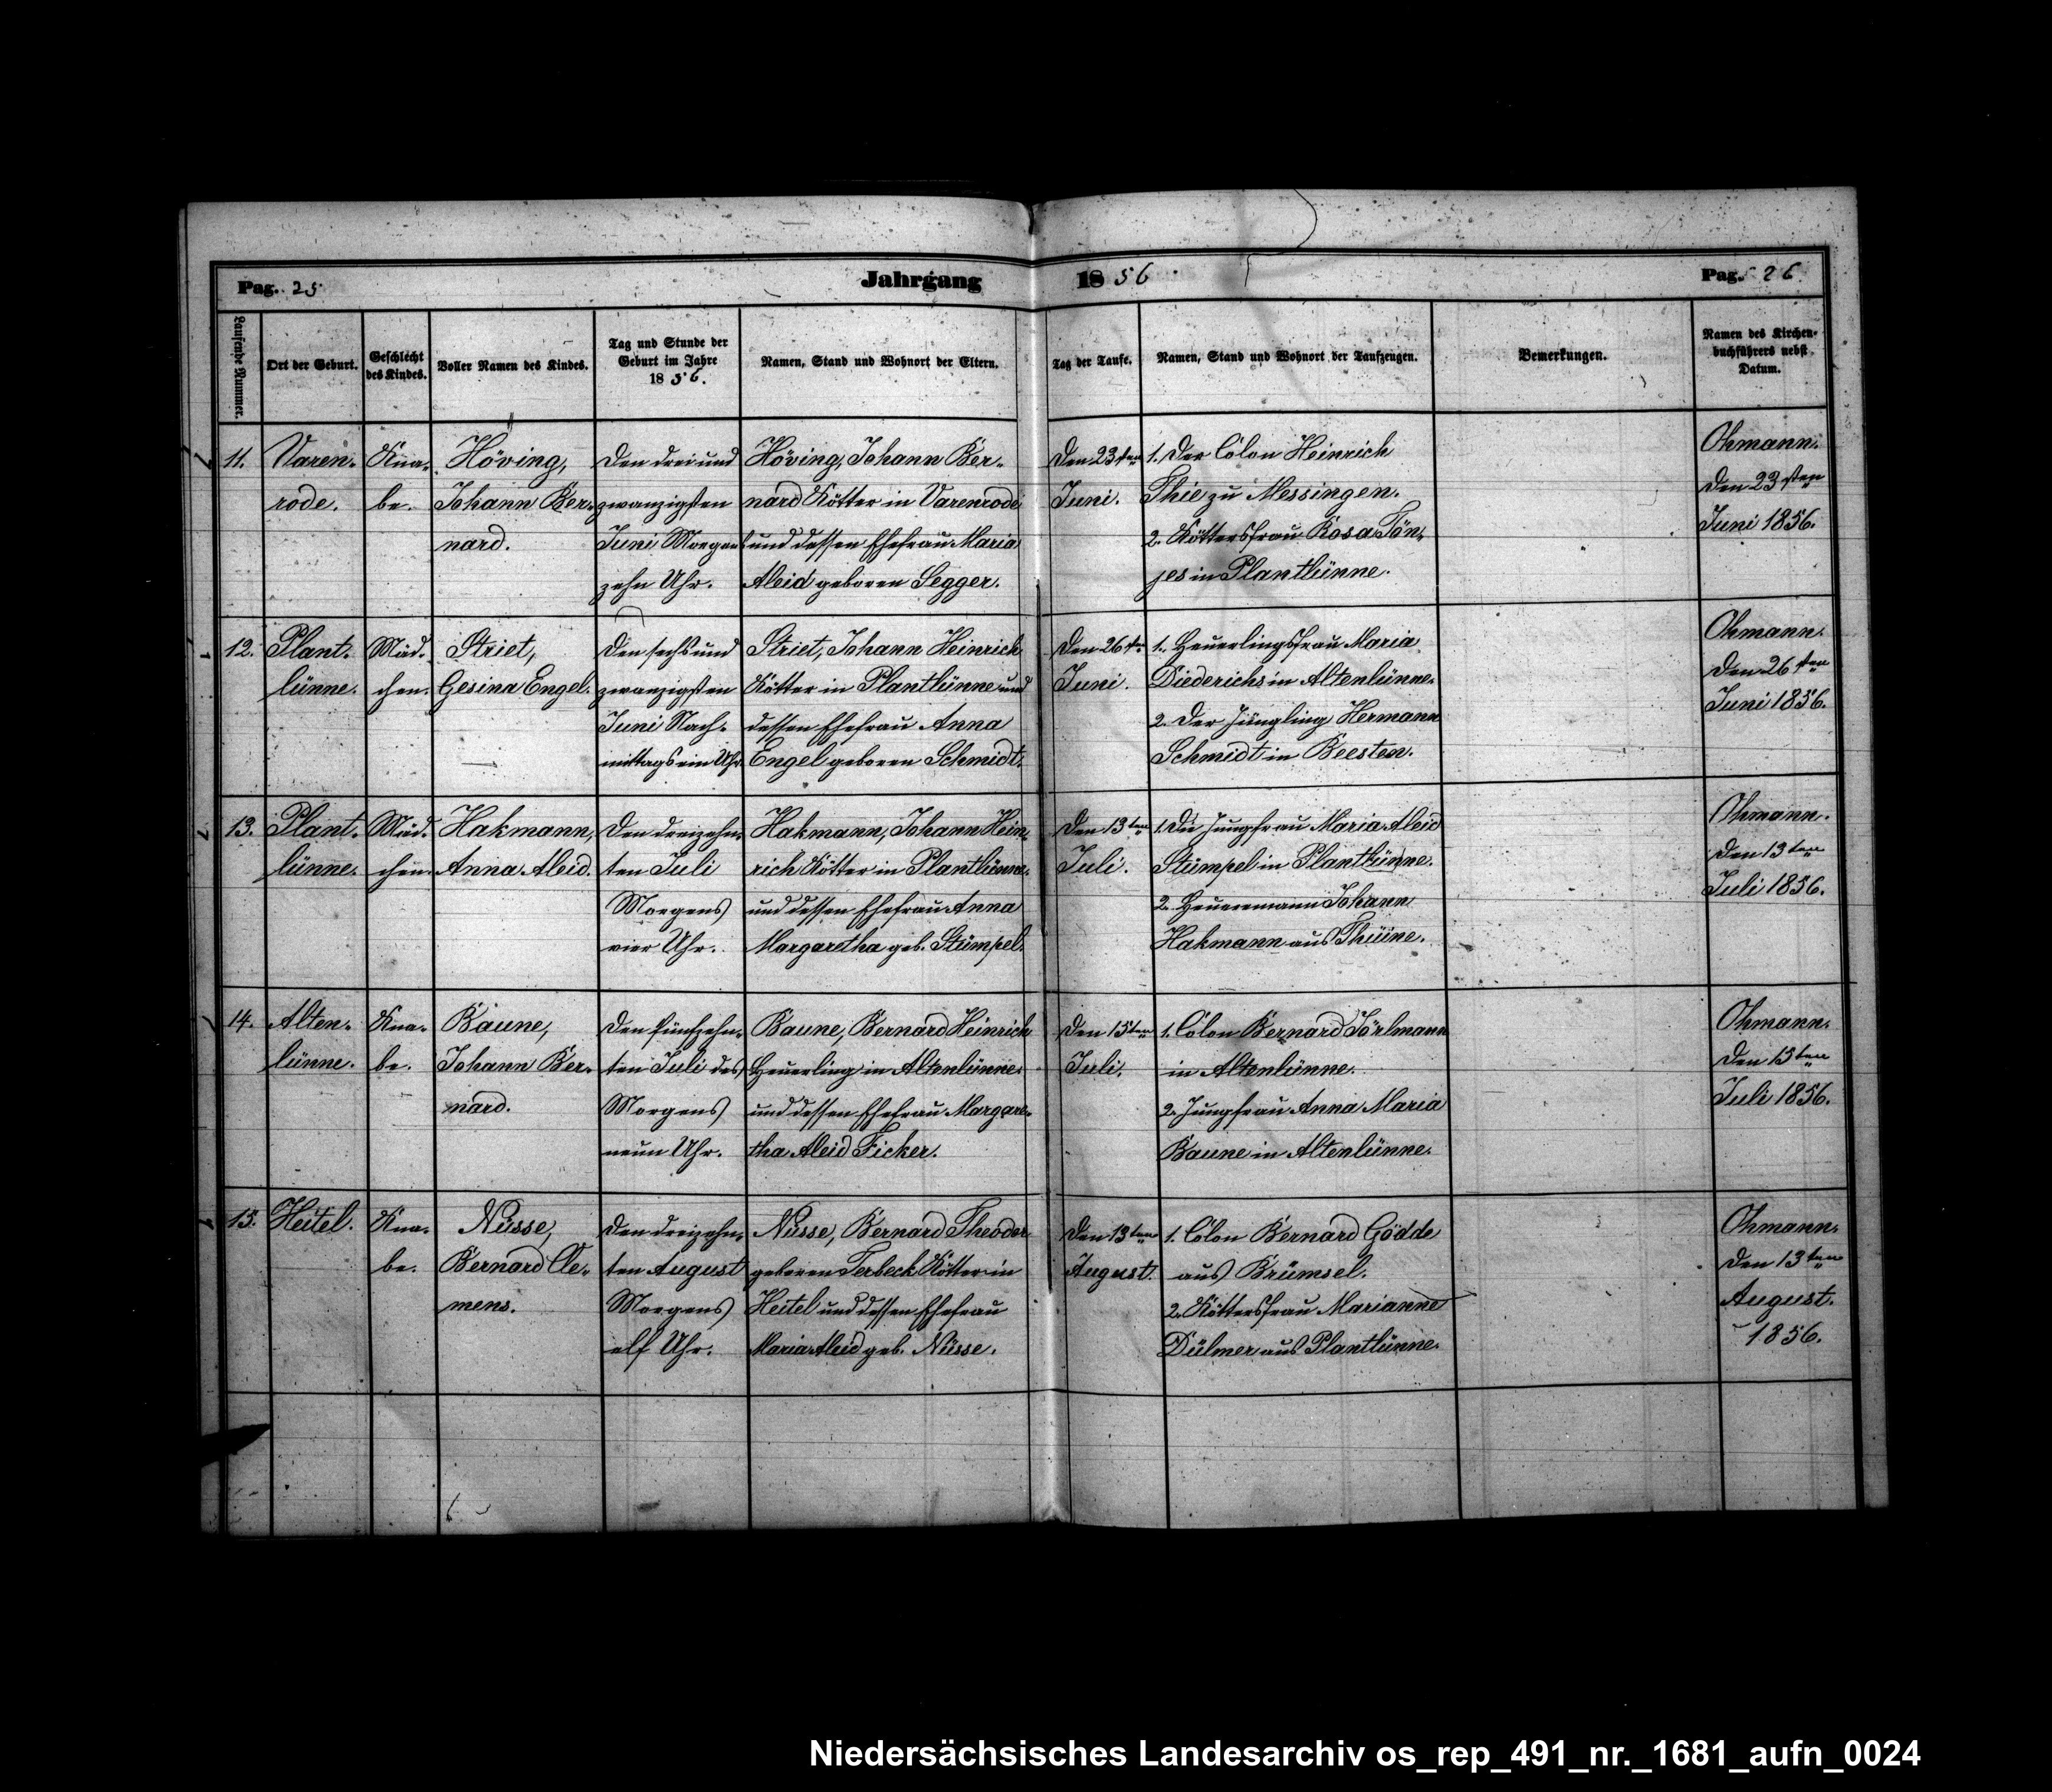 Pag. 25
Jahrgang
1856
Pag. 26
Laufende Nummer.
Ort der Geburt.
Geschlecht
des Kindes.
Voller Namen des Kindes.
Tag und Stunde der
Geburt im Jahre
1856.
Namen, Stand und Wohnort der Eltern.
Tag der Taufe.
Namen, Stand und Wohnort der Taufzeugen.
Bemerkungen.
Namen des Kirchen-
buchführers nebst
Datum.
11.
Varen-
rode.
Kna-
be.
Höving,
Johann Ber-
nard.
Den drei und
zwanzigsten
Juni Morgens
zehn Uhr.
Höving, Johann Ber-
nard Kötter in Varenrode
und dessen Ehefrau Maria
Aleid geboren Segger.
Den 23sten
Juni.
1. Der Colon Heinrich
Thie zu Messingen.
2. Köttersfrau Rosa Tön-
jes in Plantlünne.
Ohmann.
Den 23sten
Juni 1856.
12.
Plant-
lünne.
Mäd-
chen.
Striet,
Gesina Engel.
Den sechs und
zwanzigsten
Juni Nach-
mittags ein Uhr
Striet, Johann Heinrich
Kötter in Plantlünne und
dessen Ehefrau Anna
Engel geboren Schmidt.
Den 26sten
Juni.
1. Heuerlingsfrau Maria
Diederichs in Altenlünne.
2. Der Jüngling Hermann
Schmidt in Beesten.
Ohmann.
Den 26sten
Juni 1856.
13.
Plant-
lünne.
Mäd-
chen.
Hakmann,
Anna Aleid.
Den dreizehn-
ten Juli
Morgens
vier Uhr.
Hakmann, Johann Hein-
rich Kötter in Plantlünne.
und dessen Ehefrau Anna
Margaretha geb. Stümpel.
Den 13ten
Juli.
1. Die Jungfrau Maria Aleid
Stümpel in Plantlünne.
2. Heuermann Johann
Hakmann aus Thüine.
Ohmann.
Den 13ten
Juli 1856.
14.
Alten-
lünne.
Kna-
be.
Baune,
Johann Ber-
nard.
Den fünfzehn-
ten Juli des
Morgens
neun Uhr.
Baune, Bernard Heinrich
Heuerling in Altenlünne.
und dessen Ehefrau Margare-
tha Aleid Ficker.
Den 15ten
Juli.
1. Colon Bernard Törlmann
in Altenlünne.
2. Jungfrau Anna Maria
Baune in Altenlünne.
Ohmann.
Den 15ten
Juli 1856.
15.
Heitel.
Kna-
be.
Nüsse,
Bernard Cle-
mens.
Den dreizehn-
ten August
Morgens
elf Uhr.
Nüsse, Bernard Theodor
geboren Terbeck Kötter in
Heitel und dessen Ehefrau
Maria Aleid geb. Nüsse.
Den 13ten
August.
1. Colon Bernard Gödde
aus Brümsel.
2. Köttersfrau Marianne
Dülmer aus Plantlünne.
Ohmann.
Den 13ten
August.
1856.
Niedersächsisches Landesarchiv os_rep_491_nr._1681_aufn_0024